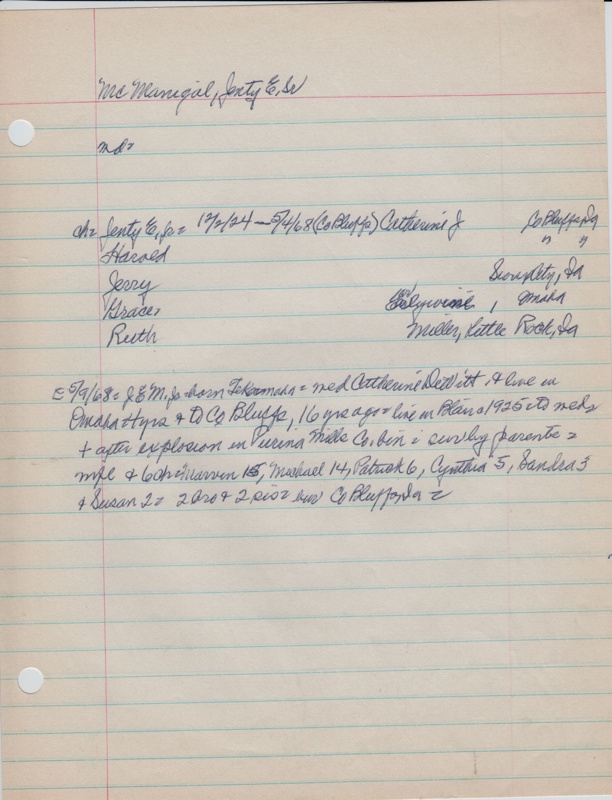 Mc Manigal, Jenty E, Sr
md=
ch= Jenty E, Jr= 12/2/24 – 5/4/68 (Co Bluffs) Catherine J Co Bluffs, Ia
Harold " "
Jerry Sioux City, Ia
Grace= , Omaha
Ruth Miller, Little Rock, Ia
E 5/9/68= J E M, Jr= born Tekamah= med Catherine DeWitt, & live in
Omaha 4 yrs & to Co Bluffs, 16 yrs ago= live in Blair 1925 to
+ after explosion in Purina Mills Co. bin = surv by parents=
& 6 ch= Marvin 15, Michael 14, Patrick 6, Cynthia 5, Sandra 3
& Susan 2= 2 bro & 2 sis= bur Co Bluffs, Ia =